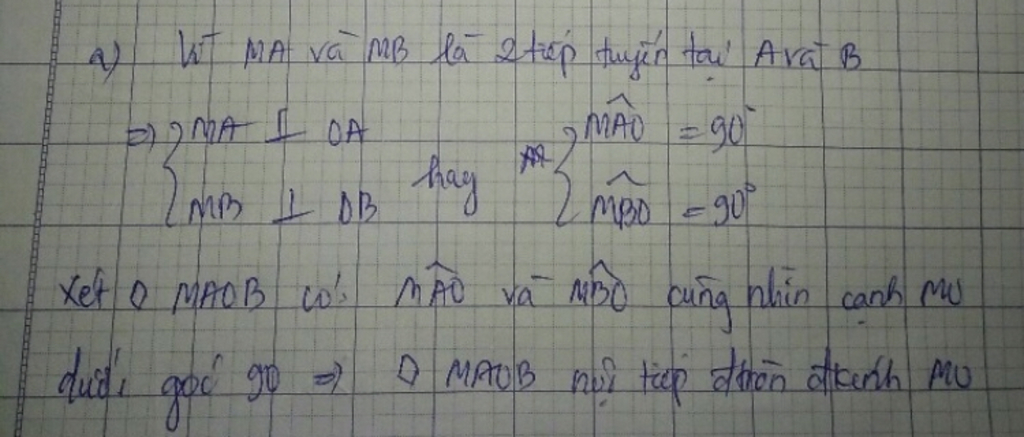 a) Vì MA và MB là 2 tiếp tuyến tại A và B
=> { MA ⊥ OA hay { MÂO = 90°
{ MB ⊥ OB { MB̂O = 90°
Xét ◊ MAOB có: MÂO và MB̂O cùng nhìn cạnh MO
dưới góc 90 => ◊ MAOB nội tiếp đtròn đkính MO